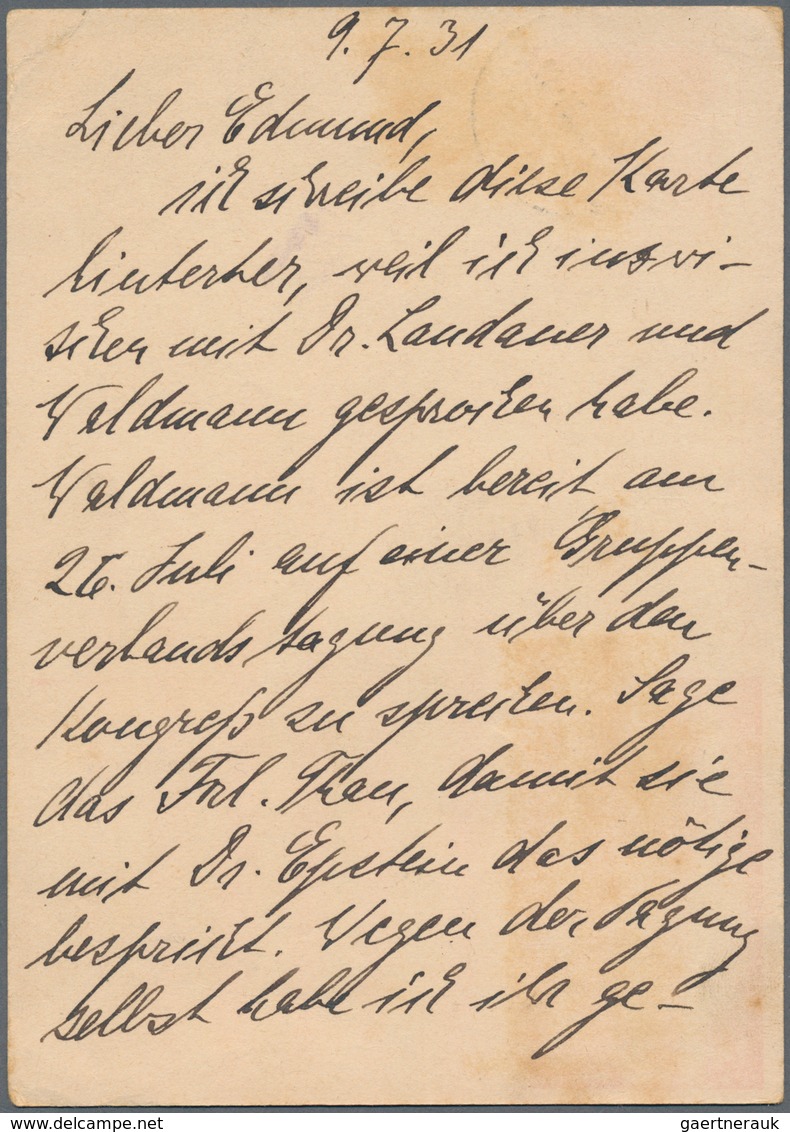 9. 7. 31
Lieber Edmund,
ich schreibe diese Karte
hinterher, weil ich inzwi-
schen mit Dr. Landauer und
Waldmann gesprochen habe.
Waldmann ist bereit am
26. Juli auf einer Gruppen-
verbandstagung über den
Kongreß zu sprechen. Sage
das Frl. Thau, damit sie
mit Dr. Epstein das nötige
bespricht. Wegen der Tagung
selbst habe ich ihr ge-
delcampe.net
gaertnerauk